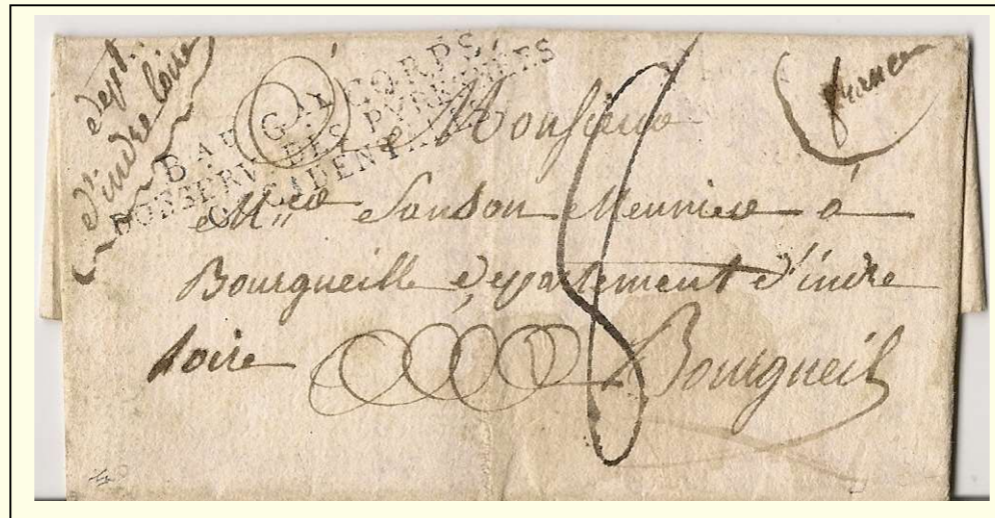 dept.
d'indre loire
BAU GAL CORPS
D'OBSERV. DES PYRENEES
OCCIDENTALES
france
Monsieur
Sanson Meunier à
Bourgueille departement d'indre
loire Bourgueil
8